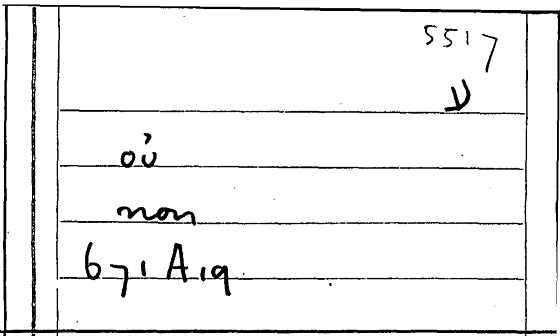 5517
V
οὐ
non
671 A 19